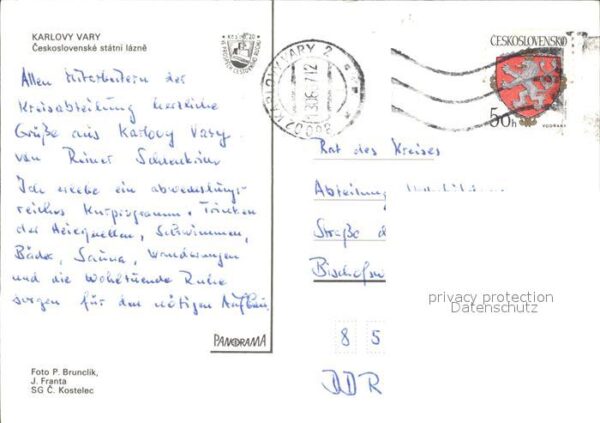 KARLOVY VARY
Československé státní lázně
Allen Mitarbeitern der
Kreisabteilung herzliche
Grüße aus Karlovy Vary
von Reiner
Ich erlebe ein abwechslungs-
reiches Kurprogramm. Trinken
der Heilquellen, Schwimmen,
Bäder, Sauna, Wanderungen
und die wohltuende Ruhe
sorgen für den nötigen Aufbau.
PANORAMA
Foto P. Brunclík,
J. Franta
SG Č. Kostelec
KARLOVY VARY 2
ČESKOSLOVENSKO
50h
VODŇANY
Rat des Kreises
Abteilung
Straße d
Bischofsw
privacy protection
Datenschutz
8 5
DDR